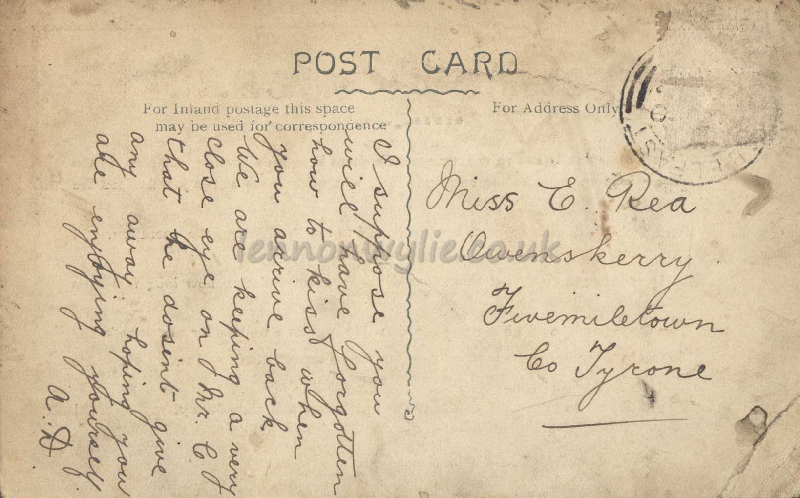 POST CARD
For Inland postage this space
may be used for correspondence
For Address Only
I suppose you
will have forgotten
how to kiss when
you arrive back
We are keeping a very
close eye on Mr. C.
that he dosent give
any away hoping you
are enjoying yourself.
A. H.
Miss E. Rea
Owenskerry
Fivemiletown
Co Tyrone
lennonwylie.co.uk